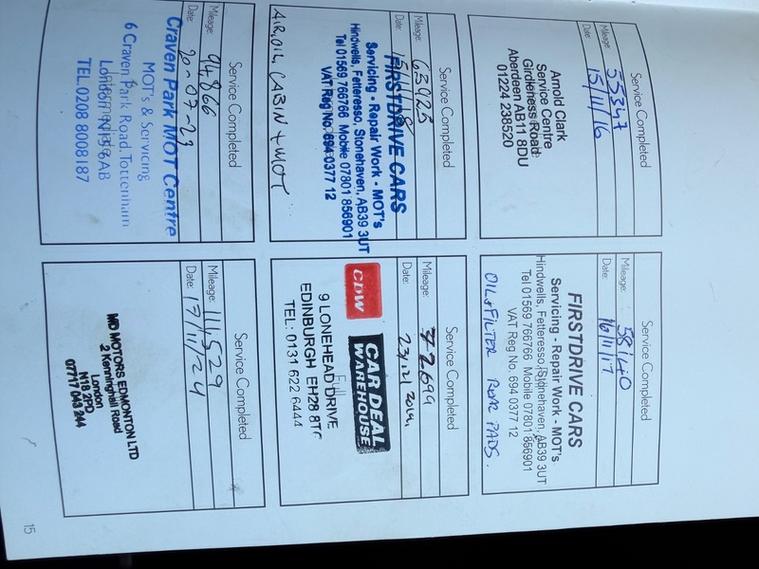 Service Completed
Mileage: 55347
Date: 15/11/16
Arnold Clark
Service Centre
Girdleness Road
Aberdeen AB11 8DU
01224 238520
Service Completed
Mileage:
Date: 16/11/17
FIRSTDRIVE CARS
Servicing - Repair Work - MOT's
Hindwells, Fetteresso, Stonehaven, AB39 3UT
Tel 01569 766766 Mobile 07801 856901
VAT Reg No. 694 0377 12
OIL & FILTER REAR PADS.
Service Completed
Mileage: 63923
Date:
FIRSTDRIVE CARS
Servicing - Repair Work - MOT's
Hindwells, Fetteresso, Stonehaven, AB39 3UT
Tel 01569 766766 Mobile 07801 856901
VAT Reg No. 694 0377 12
AIR, OIL, CABIN + MOT
Service Completed
Mileage: 72699
Date: 23/12/2019.
CDW CAR DEAL
WAREHOUSE
9 LONEHEAD DRIVE
EDINBURGH EH28 8TG
TEL: 0131 622 6444
Full
Service Completed
Mileage: 94866
Date: 20-07-23
Craven Park MOT Centre
MOT's & Servicing
6 Craven Park Road, Tottenham
London
TEL.0208 8008187
Service Completed
Mileage: 111,529
Date: 17/11/24
MD MOTORS EDMONTON LTD
2 Kenninghall Road
London
N18 2PD
07717 043 244
15